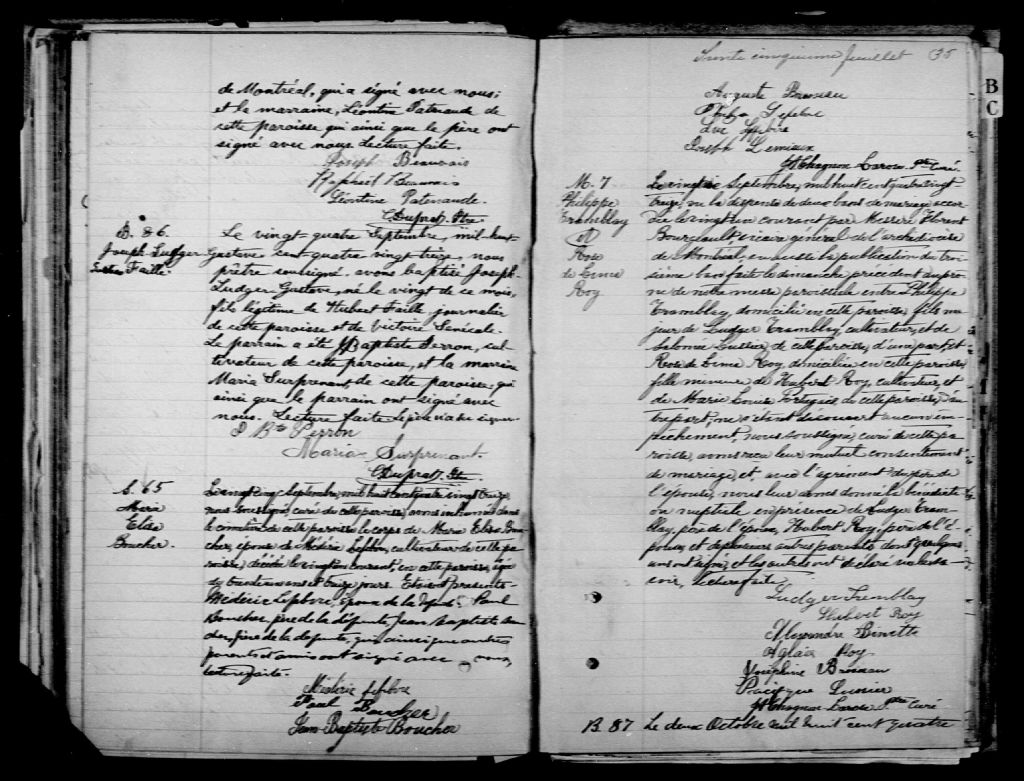 de Montréal, qui a signé avec nous;
et la marraine, Léontine Patenaude de
cette paroisse qui ainsi que le père ont
signé avec nous. Lecture faite.
Joseph Beauvais
Raphaël Beauvais
Léontine Patenaude.
C Duprat, Ptre.
B. 86.
Joseph Ludger
Gustave Faille
Le vingt-quatre Septembre, mil-huit-
cent-quatre-vingt-treize, nous
prêtre soussigné avons baptisé Joseph-
Ludger-Gustave, né le vingt de ce mois,
fils légitime de Hubert Faille journalier
de cette paroisse et de Victoire Senécale.
Le parrain a été J Baptiste Perron, cul-
tivateur de cette paroisse, et la marraine
Maria Surprenant de cette paroisse, qui
ainsi que le parrain ont signé avec
nous. Lecture faite. Le père n'a su signer.
J Bte Perron
Maria Surprenant
C Duprat, Ptr.
S. 65
Marie
Elise
Boucher.
Le vingt cinq Septembre, mil huit cent quatre vingt treize,
nous soussigné, curé de cette paroisse, avons inhumé dans
le cimetière de cette paroisse le corps de Marie Elise Bou-
cher, épouse de Médéric Lefebvre, cultivateur de cette pa-
roisse, décédée le vingt courant, en cette paroisse, âgée
de trente ans et treize jours. Etaient présents
Médéric Lefebvre, époux de la défunte, Paul
Boucher, père de la défunte, Jean Baptiste Bou-
cher, frère de la défunte, qui ainsi que autres
parents et amis ont signé avec nous,
lecture faite.
Médéric Lefebvre
Paul Boucher
Jean Baptiste Boucher
Trente cinquième feuillet 35
Auguste Brosseau
Lefebvre
Luc Lefebvre
Joseph Lemieux
Chagnon Larose Ptre Curé.
M. 7
Philippe
Tremblay
et
Rose
de Lima
Roy
Le vingt Septembre, mil huit cent quatre vingt
treize, vu la dispense de deux bans de mariage accor-
dée le vingt un courant par Messire Florent
Bourgeault, vicaire général de l'archidiocèse
de Montréal, vu aussi la publication du troi-
sième ban faite le dimanche précédent au prô-
ne de notre messe paroissiale entre Philippe
Tremblay, domicilié en cette paroisse, fils ma-
jeur de Ludger Tremblay, cultivateur, et de
Salomée Lussier, de cette paroisse, d'une part, et
Rose de Lima Roy, domiciliée en cette paroisse,
fille mineure de Hubert Roy, cultivateur, et
de Marie Louise Fortugais de cette paroisse, d'au-
tre part, ne s'étant découvert aucun em-
pêchement, nous soussigné, curé de cette pa-
roisse, avons reçu leur mutuel consentement
de mariage, et, avec l'agrément du père de
l'épouse, nous leur avons donné la bénédicti-
on nuptiale en présence de Ludger Trem-
blay, père de l'époux, Hubert Roy, père de l'é-
pouse, et de plusieurs autres parents dont quelques
uns ont signé, et les autres ont déclaré ne le sa-
voir, lecture faite.
Ludger Tremblay
Hubert Roy
Alexandre Binette
Aglaé Roy
Joséphine Brosseau
Pacifique Lussier
Chagnon Larose Ptre Curé
B. 87
Le deux Octobre mil huit cent quatre
B
C